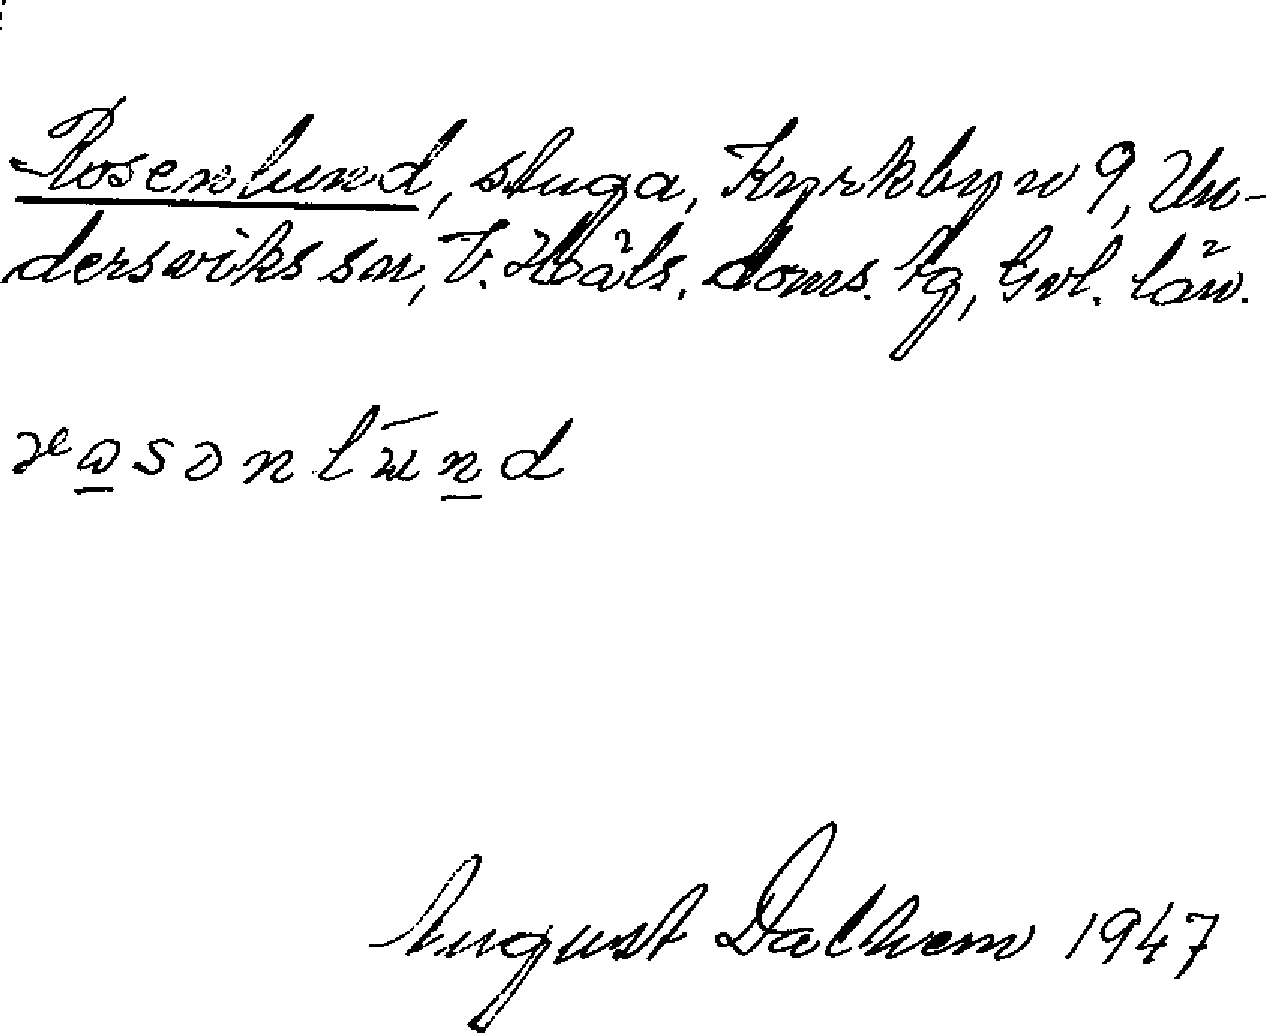 Rosenlund, stuga, Kyrkbyn 9, Un-
dersviks sn, V. Häls. doms. tg, Gvl. län.
rosonlūnd
August Dalhem 1947